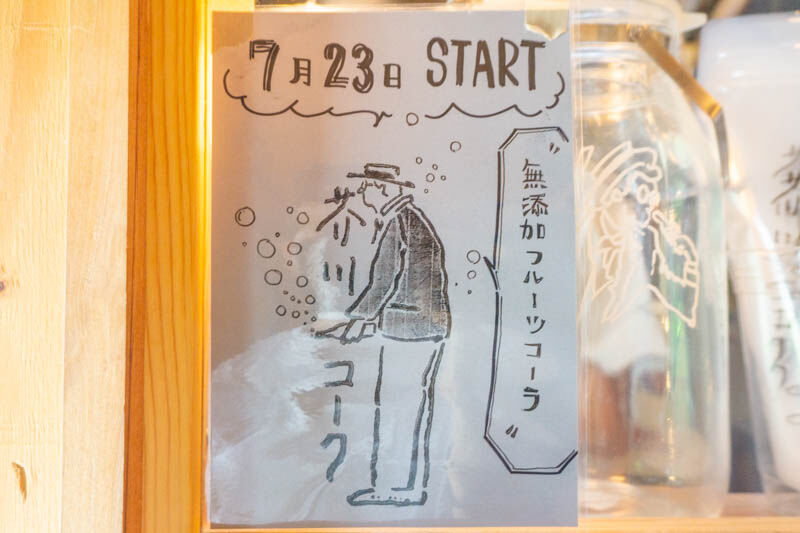 7月23日 START
〝無添加フルーツコーラ〟
芥川
コーク